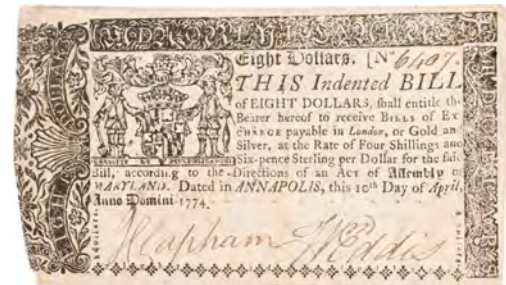 Eight Dollars. [Nº 6407.
THIS Indented BILL
of EIGHT DOLLARS, ſhall entitle th
Bearer hereof to receive BILLS of EX
CHANGE payable in London, or Gold an
Silver, at the Rate of Four Shillings and
Six-pence Sterling per Dollar for the ſaid
Bill, according to the Directions of an ACT of Aſſembly of
MARYLAND. Dated in ANNAPOLIS, this 10th Day of April,
Anno Domini 1774.
J Clapham W Eddis